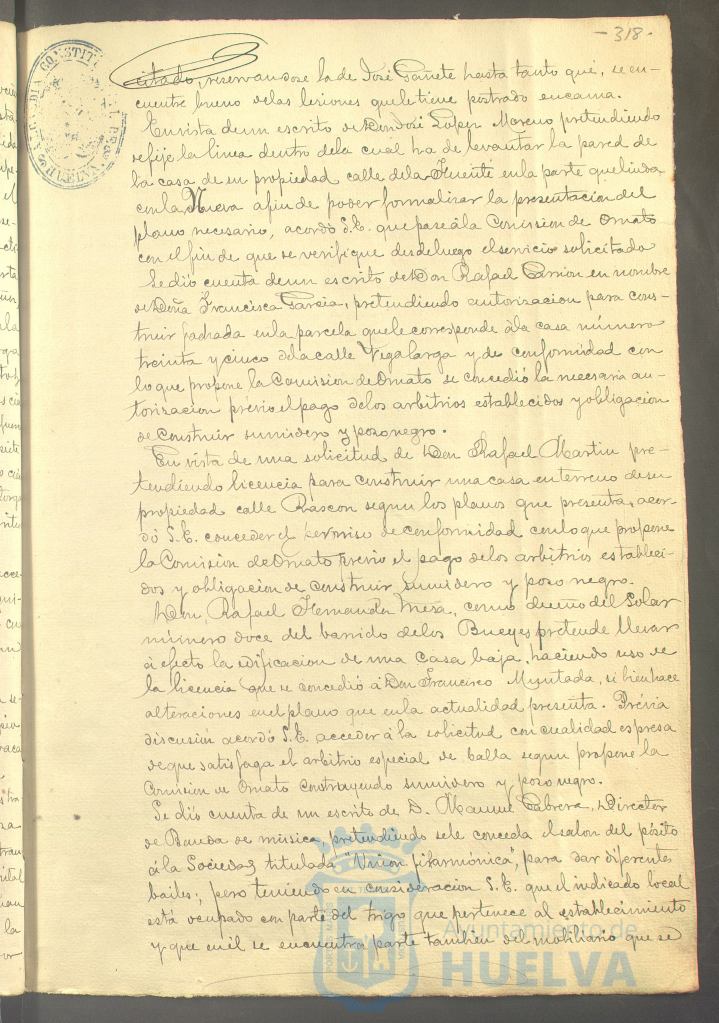 -318-
citado, reservandose la de José Gañete hasta tanto que, se en-
cuentre bueno de las lesiones que le tiene postrado en cama.
En vista de un escrito de Don José Lopez Moreno pretendiendo
se fije la linea dentro dela cual ha de levantar la pared de
la casa de su propiedad calle dela Fuente en la parte que linda
con la Nueva afin de poder formalizar la presentacion del
plano necesario, acordó S.E. que pase á la Comision de Ornato
con el fin de que se verifique desde luego el servicio solicitado
Se dió cuenta de un escrito de Don Rafael Carrion en nombre
de Doña Francisca Garcia, pretendiendo autorizacion para cons-
truir fachada en la parcela que le corresponde á la casa número
treinta y cinco dela calle Vega larga y de conformidad con
lo que propone la Comision de Ornato se concedió la necesaria au-
torizacion prévio el pago delos arbitrios establecidos y obligacion
de construir sumidero y pozo negro.
En vista de una solicitud de Don Rafael Martin pre-
tendiendo licencia para construir una casa en terreno de su
propiedad calle Rascon segun los planos que presenta, acor-
dó S.E. conceder el permiso de conformidad con lo que propone
la Comision de Ornato previo el pago delos arbitrios estableci-
dos y obligacion de construir sumidero y pozo negro.
Don Rafael Hernandez Mesa, como dueño del Solar
número doce del barrido delos Bueyes pretende llevar
á efecto la edificacion de una casa baja, haciendo uso de
la licencia que se concedió á Don Francisco Muntada, si bien hace
alteraciones en el plano que en la actualidad presenta. Prévia
discusión acordó S.E. acceder á la solicitud con cualidad espresa
de que satisfaga el arbitrio especial de balla segun propone la
Comision de Ornato construyendo sumidero y pozo negro.
Se dió cuenta de un escrito de D. Manuel Cabrera, Director
de Banda de música pretendiendo se le conceda el salon del pósito
á la Sociedad titulada "Union filarmónica", para dar diferentes
bailes; pero teniendo en consideracion S.E. que el indicado local
está ocupado con parte del trigo que pertenece al establecimiento
y que en él se encuentra parte tambien del mobiliario que se
Ayuntamiento de
HUELVA